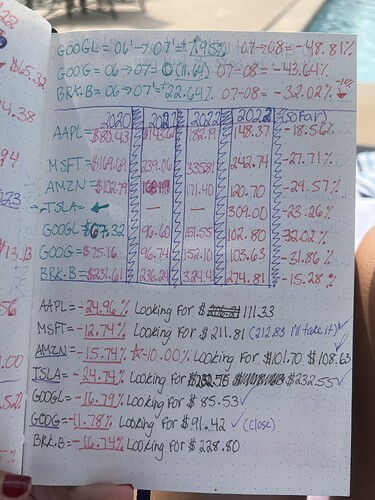 GOOGL = 06' → 07' = 7.95% 07 → 08 = -48.81%
GOOG = 06 → 07 = (11.64) 07-08 = -43.64%
BRK.B = 06 → 07' = 22.64% 07-08 = -32.02%
2020 2021 2022 2022 (so far)
AAPL = $80.43 182.19 148.37 -18.56%
MSFT = 239.06 335.81 242.74 -27.71%
AMZN = $102.79 171.40 120.70 -29.57%
→TSLA= ← — — 309.00 -23.26%
GOOGL $67.32 96.60 151.55 102.80 -32.02%
GOOG = $75.16 96.74 152.10 103.63 -31.86%
BRK.B = $231.61 236.24 324.4 274.81 -15.28%
AAPL = -24.96% Looking For $ 111.33
MSFT = -12.74% Looking For $211.81 (212.83 I'll take it) ✓
AMZN = -15.74% ☆-10.00% Looking For $101.70 $108.63
TSLA = -24.74% Looking For $232.55 ✓
GOOGL = -16.79% Looking For $85.53 ✓
GOOG = -11.78% Looking For $91.42 ✓ (close)
BRK.B = -16.74% Looking For $228.80
65.32
4.38
94
523
$13.13
56
1.00